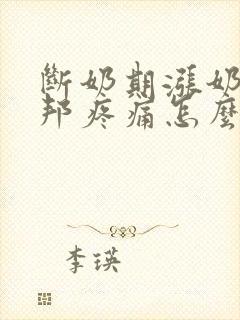 斷奶期漲奶
邦疼痛怎麼
李瑛